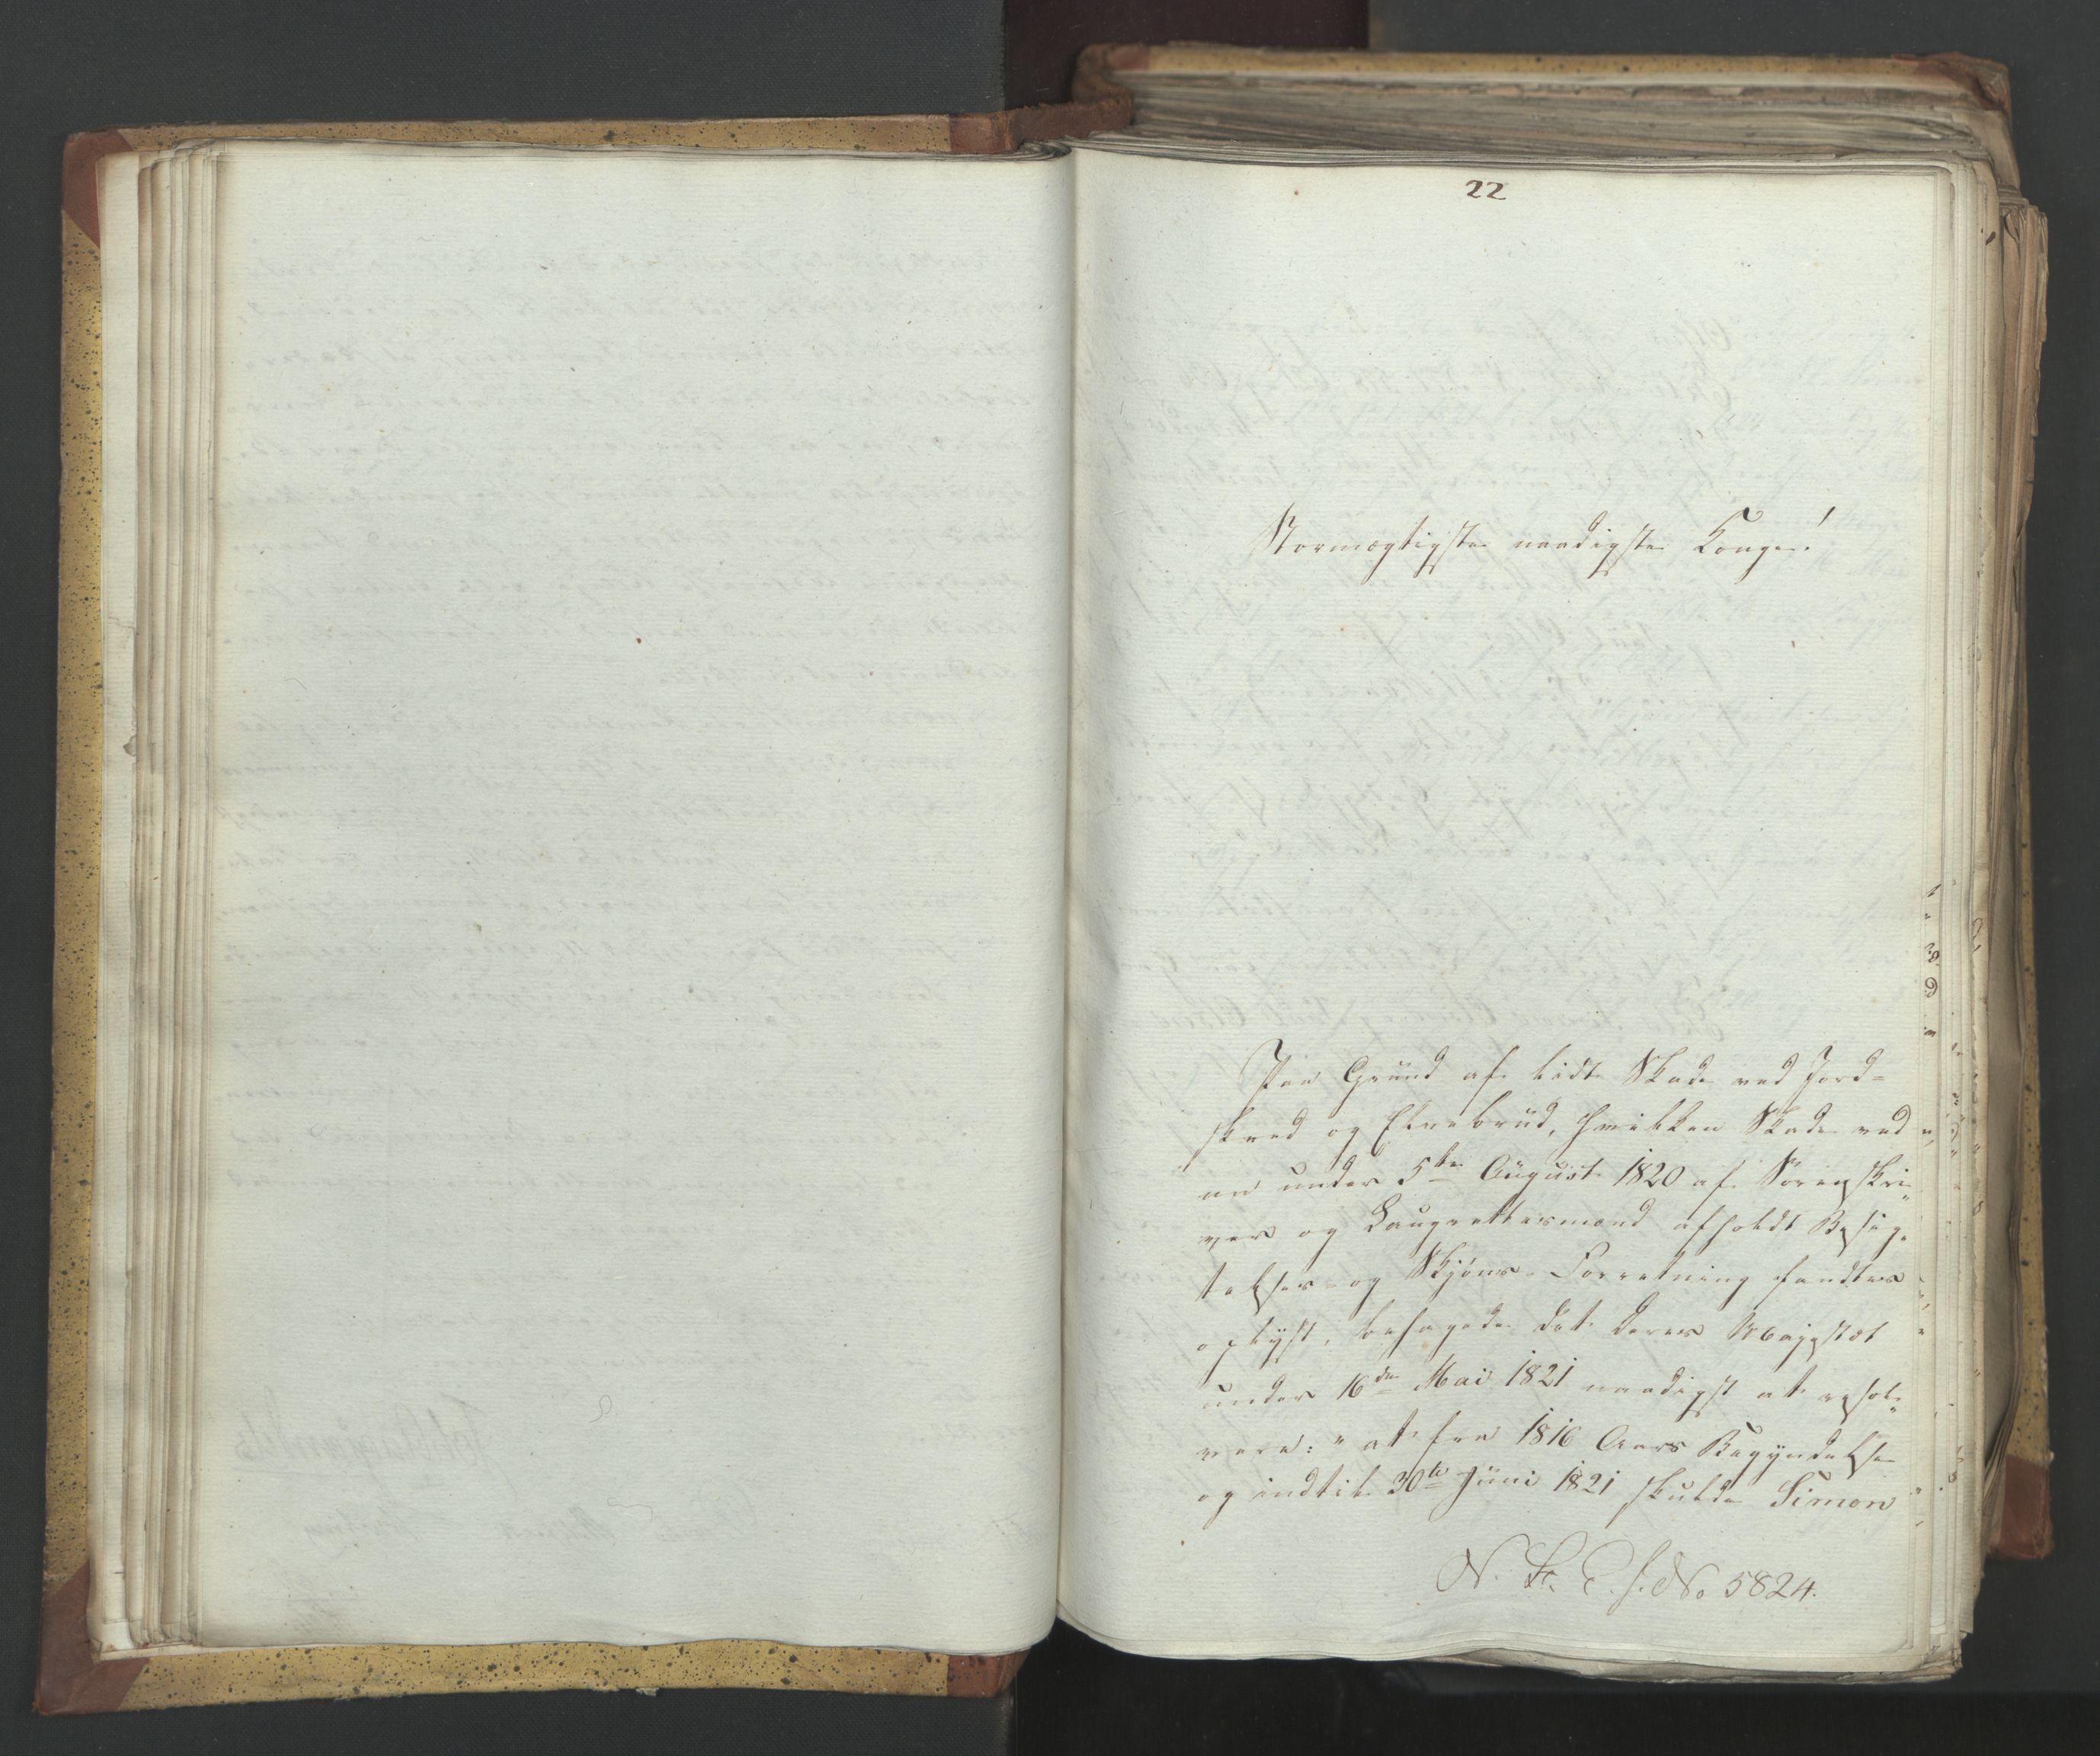 22
Stormægtigste naadigste Konge!
Paa Grund af lidt Skade ved Jord-
skred og Elvebrud, hvilken Skade ved
en under 5te August 1820 af Sorenskri-
ver og Laugrettesmænd afholdt Besig-
telses- og Skjöns-Forretning fandtes
oplyst, behagede det Deres Majestæt
under 16de Mai 1821 naadigst at resol-
vere: "at fra 1816 Aars Begyndelse
og indtil 30te Juni 1821 skulde Simon
No 5824.